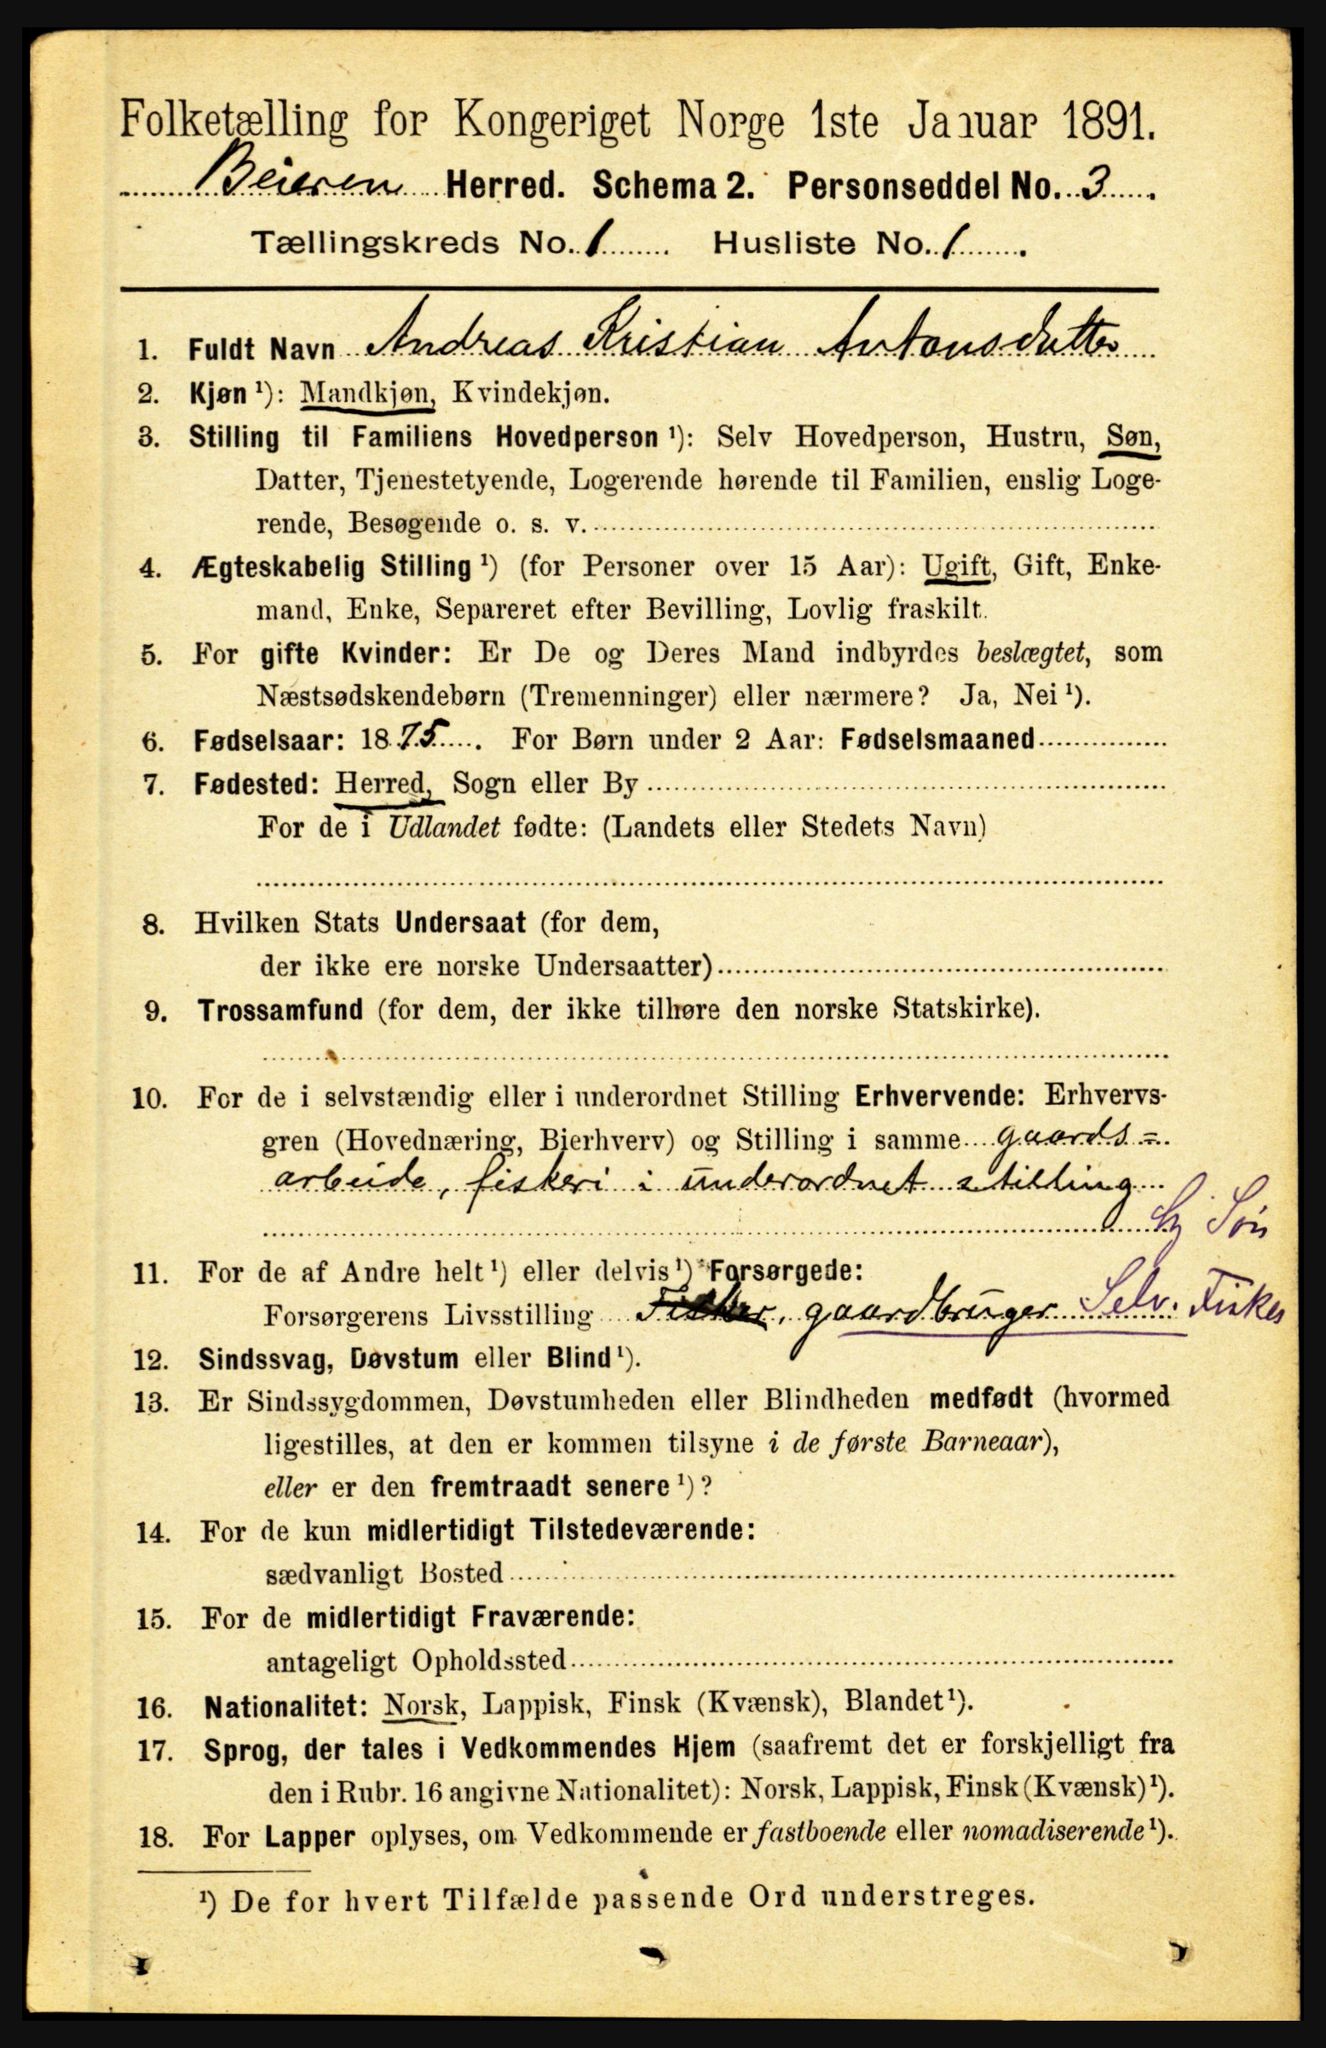 Folketælling for Kongeriget Norge 1ste Januar 1891.
Beieren Herred. Schema 2. Personseddel No. 3.
Tællingskreds No. 1 Husliste No. 1.
1. Fuldt Navn Andreas Kristian Antonsdatter
2. Kjøn ¹): Mandkjøn, Kvindekjøn.
3. Stilling til Familiens Hovedperson ¹): Selv Hovedperson, Hustru, Søn,
Datter, Tjenestetyende, Logerende hørende til Familien, enslig Loge-
rende, Besøgende o. s. v.
4. Ægteskabelig Stilling ¹) (for Personer over 15 Aar): Ugift, Gift, Enke-
mand, Enke, Separeret efter Bevilling, Lovlig fraskilt.
5. For gifte Kvinder: Er De og Deres Mand indbyrdes beslægtet, som
Næstsødskendebørn (Tremenninger) eller nærmere? Ja, Nei ¹).
6. Fødselsaar: 1875. For Børn under 2 Aar: Fødselsmaaned
7. Fødested: Herred, Sogn eller By
For de i Udlandet fødte: (Landets eller Stedets Navn)
8. Hvilken Stats Undersaat (for dem,
der ikke ere norske Undersaatter)
9. Trossamfund (for dem, der ikke tilhøre den norske Statskirke).
10. For de i selvstændig eller i underordnet Stilling Erhvervende: Erhvervs-
gren (Hovednæring, Bierhverv) og Stilling i samme gaards=
arbeide, fiskeri i underordnet stilling
Søn
11. For de af Andre helt ¹) eller delvis ¹) Forsørgede:
Forsørgerens Livsstilling Fisker, gaardbruger Selv. Fisker
12. Sindssvag, Døvstum eller Blind ¹).
13. Er Sindssygdommen, Døvstumheden eller Blindheden medfødt (hvormed
ligestilles, at den er kommen tilsyne i de første Barneaar),
eller er den fremtraadt senere ¹)?
14. For de kun midlertidigt Tilstedeværende:
sædvanligt Bosted
15. For de midlertidigt Fraværende:
antageligt Opholdssted
16. Nationalitet: Norsk, Lappisk, Finsk (Kvænsk), Blandet ¹).
17. Sprog, der tales i Vedkommendes Hjem (saafremt det er forskjelligt fra
den i Rubr. 16 angivne Nationalitet): Norsk, Lappisk, Finsk (Kvænsk) ¹).
18. For Lapper oplyses, om Vedkommende er fastboende eller nomadiserende ¹).
¹) De for hvert Tilfælde passende Ord understreges.